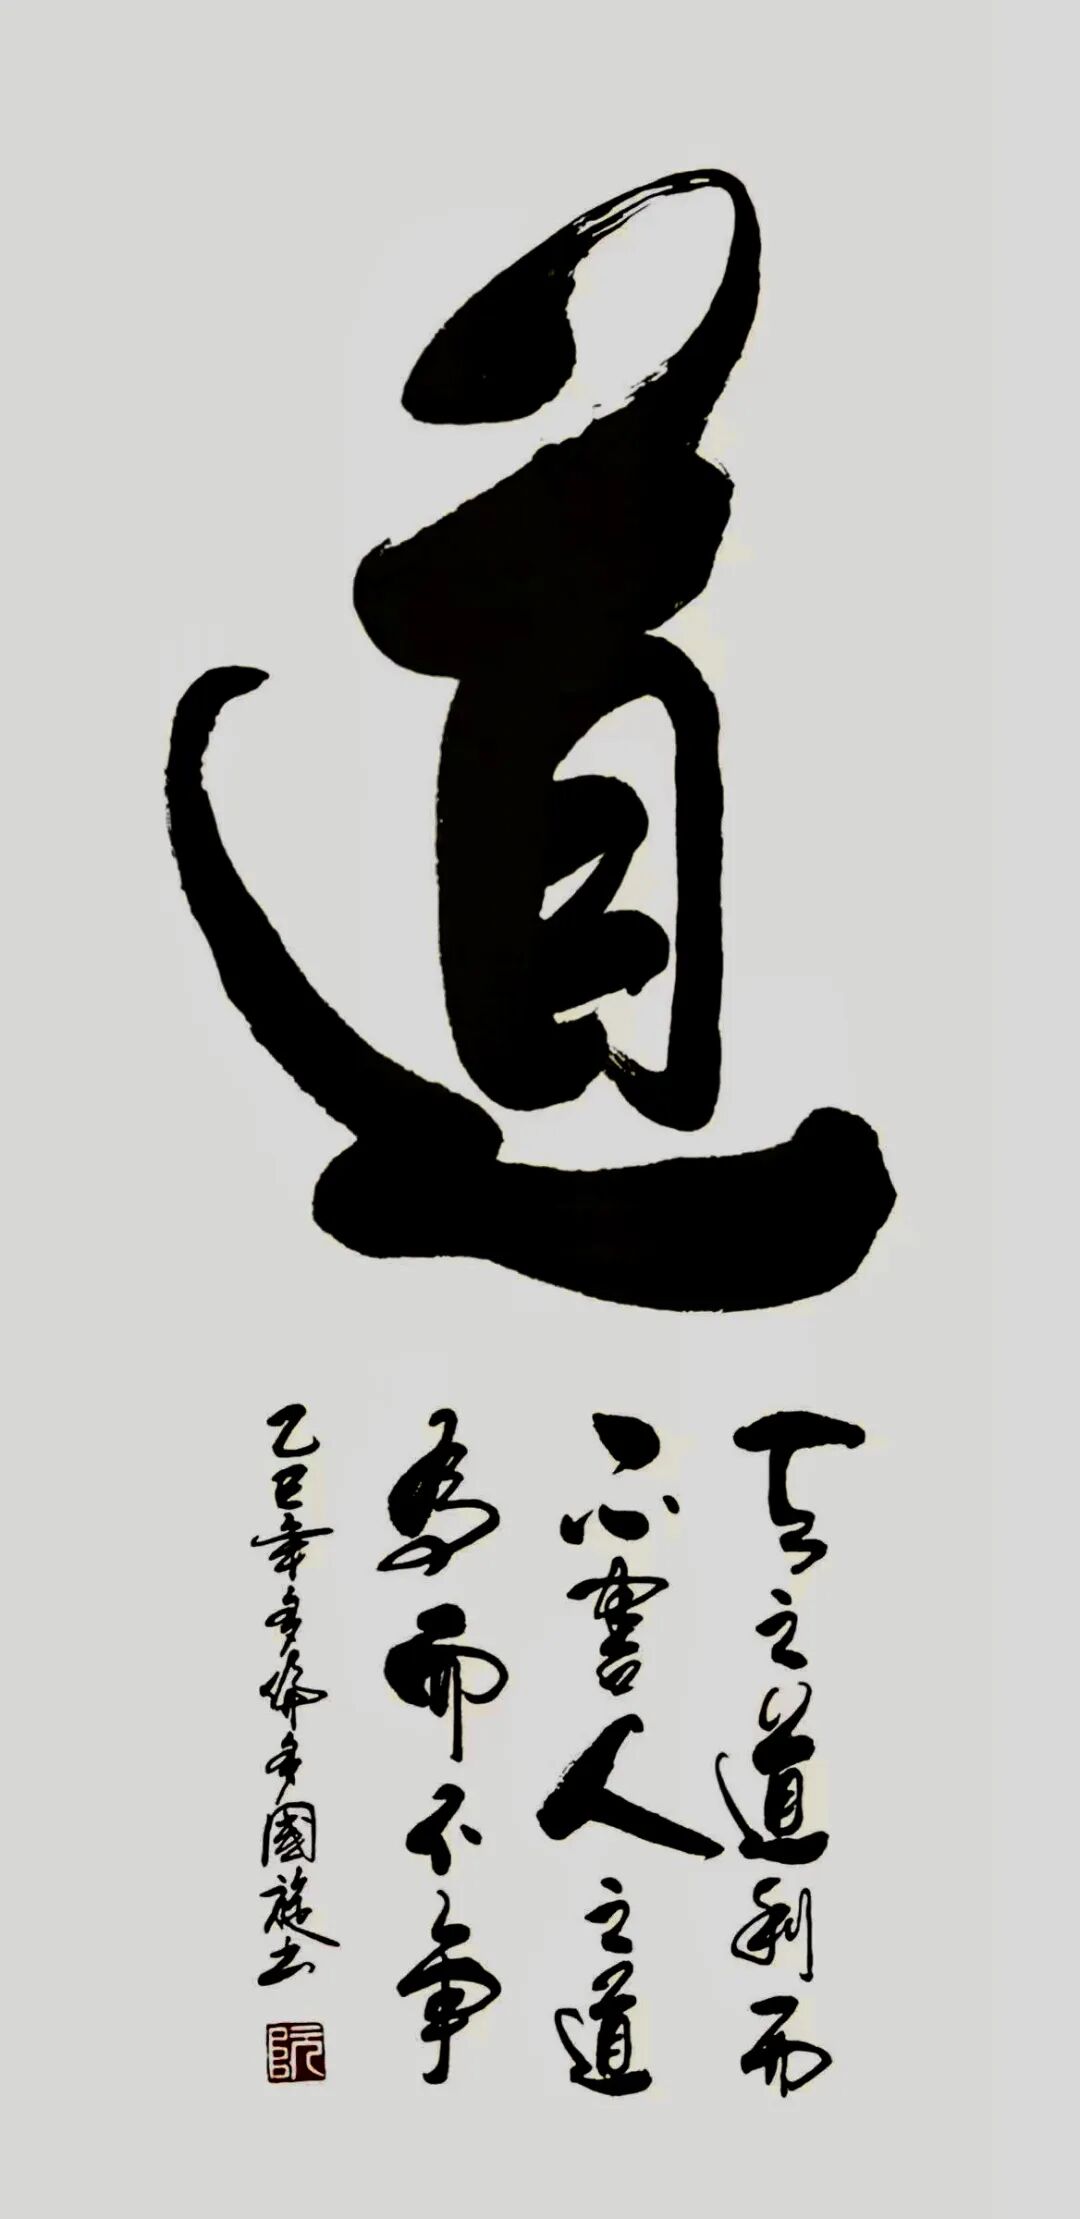 道
天之道利而
不害人之道
為而不争
乙巳年多倫多國書
阮